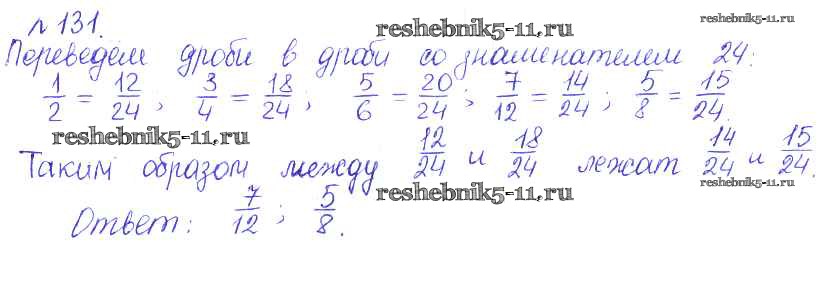 № 131. reshebnik5-11.ru reshebnik5-11.ru
Переведем дроби в дроби со знаменателем 24:
1/2 = 12/24; 3/4 = 18/24; 5/6 = 20/24; 7/12 = 14/24; 5/8 = 15/24.
reshebnik5-11.ru
Таким образом между 12/24 и 18/24 лежат 14/24 и 15/24.
reshebnik5-11.ru reshebnik5-11.ru
Ответ: 7/12; 5/8.